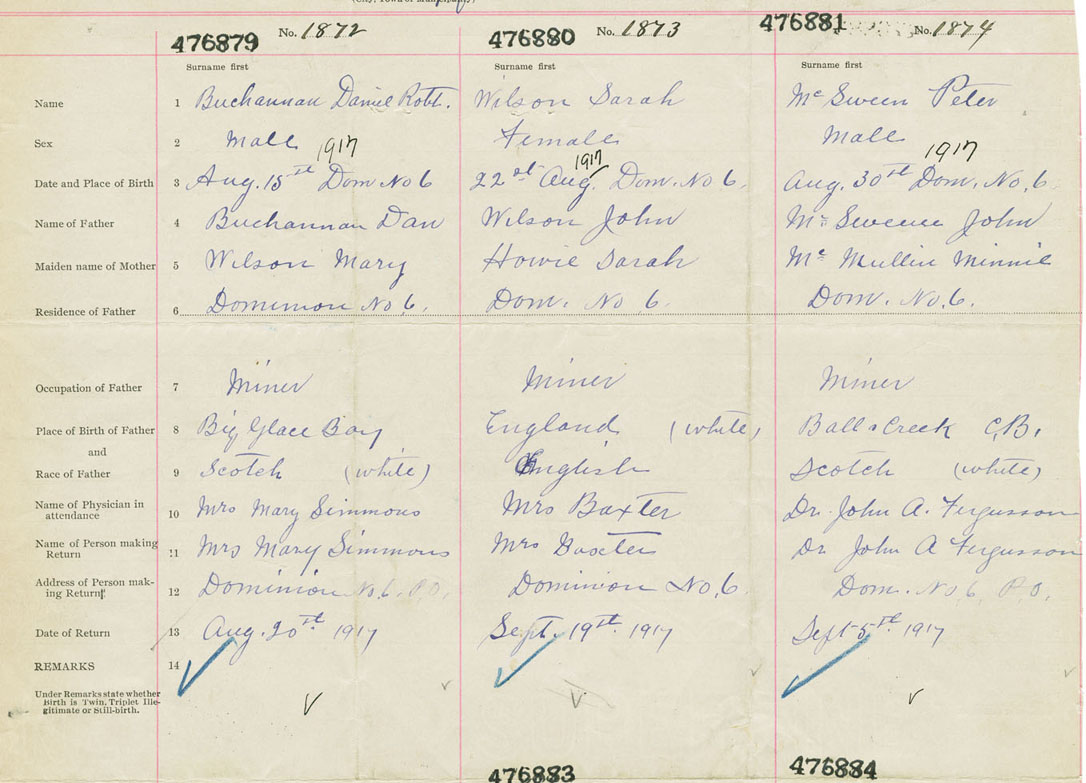 476879 No. 1872 476880 No. 1873 476881 No. 1874
Surname first Surname first Surname first
Name 1 Buchannan Daniel Robt. Wilson Sarah Mc Sween Peter
Sex 2 Male Female Male
1917 1917 1917
Date and Place of Birth 3 Aug. 15st Dom No 6 22st Aug. Dom. No 6. Aug. 30st Dom. No. 6
Name of Father 4 Buchannan Dan Wilson John Mc Sween John
Maiden name of Mother 5 Wilson Mary Howie Sarah Mc Mullin Minnie
Residence of Father 6 Dominion No 6. Dom. No 6. Dom. No. 6.
Occupation of Father 7 Miner Miner Miner
Place of Birth of Father 8 Big Glace Bay England (white) Balls Creek C.B.
and
Race of Father 9 Scotch (white) English Scotch (white)
Name of Physician in
attendance 10 Mrs Mary Simmons Mrs Baxter Dr. John A. Fergusson
Name of Person making
Return 11 Mrs Mary Simmons Mrs Baxter Dr John A Fergusson
Address of Person mak-
ing Return 12 Dominion No. 6. P.O. Dominion No. 6 Dom. No 6 P.O.
Date of Return 13 Aug. 20st 1917 Sept. 19st. 1917 Sept 5st 1917
REMARKS 14
Under Remarks state whether
Birth is Twin, Triplet Ille-
gitimate or Still-birth.
476883 476884